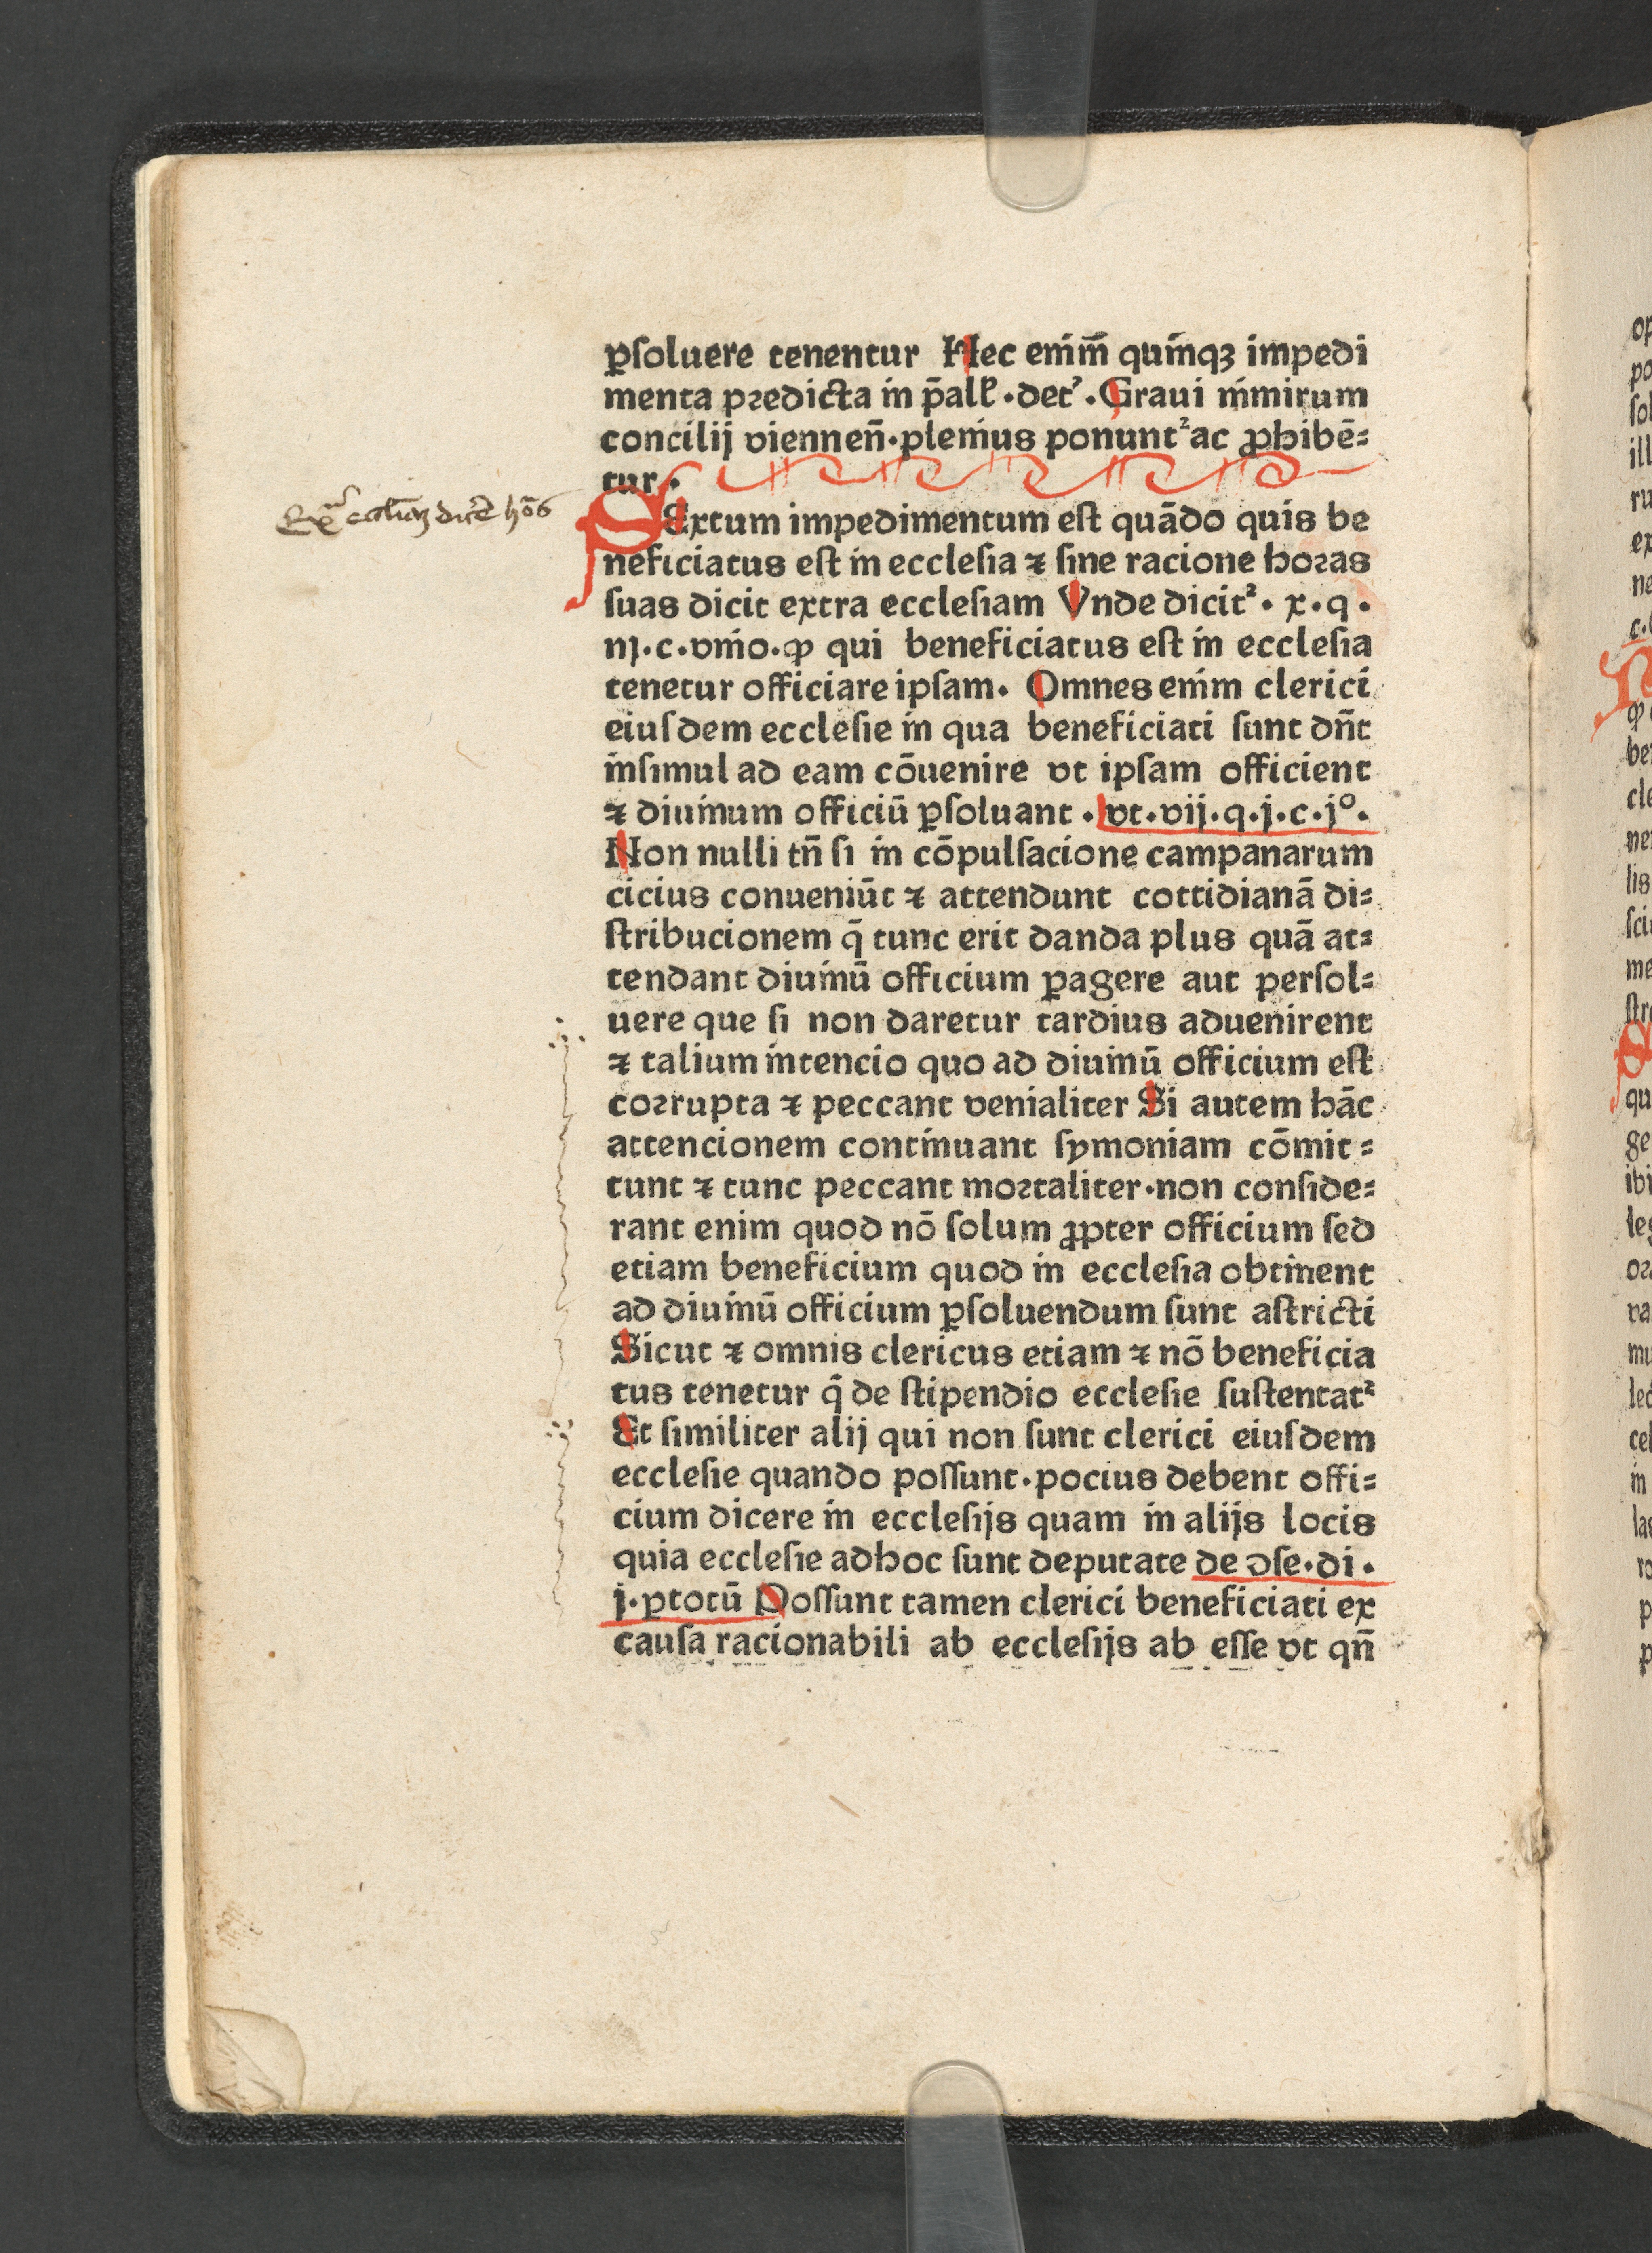 ꝑſoluere tenentur Hec enim̄ quinqꝫ impedi
menta predicta in p̄all̓ · det᷒ . Graui nimirum
concilij viennen̄ · plenius ponunt᷑ ac ꝓhibē⸗
tur .
Exͣ eccliaꝫ dicē hōs
SExtum impedimentum eſt quādo quis be
neficiatus eſt in ecclesia ⁊ ſine racione horas
ſuas dicit extra eccleſiam Vnde dicit᷑ . x . q .
iij . c . vnio . ꝙ qui beneficiatus eſt in eccleſia
tenetur officiare ipſam . Omnes enim clerici
eiuſdem eccleſie in qua beneficiati ſunt dn̄t
inſimul ad eam cōuenire vt ipſam officient
⁊ diuinum officiū ꝑſoluant . vt . vij . q . j . c . jº .
Non nulli tn̄ ſi in cōpulſacione campanarum
cicius conueniūt ⁊ attendunt cottidianā di⸗
ſtribucionem q̄ tunc erit danda plus quā at⸗
tendant diuinū officium ꝑagere aut perſol⸗
uere que ſi non daretur tardius aduenirent
⁊ talium intencio quo ad diuinū officium eſt
corrupta ⁊ peccant venialiter Si autem hāc
attencionem continuant ſymoniam cōmit⸗
tunt ⁊ tunc peccant mortaliter · non conſide⸗
rant enim quod nō ſolum ꝓpter officium ſed
etiam beneficium quod in eccleſia obtinent
ad diuinū officium ꝑſoluendum ſunt aſtricti
Sicut ⁊ omnis clericus etiam ⁊ nō beneficia
tus tenetur q̄ de ſtipendio eccleſie ſuſtentat᷑
Et ſimiliter alij qui non ſunt clerici eiuſdem
eccleſie quando poſſunt · pocius debent offi⸗
cium dicere in eccleſijs quam in alijs locis
quia eccleſie adhoc ſunt deputate de ↄſe . di .
j . ꝑtotū Poſſunt tamen clerici beneficiati ex
cauſa racionabili ab eccleſijs ab eſſe vt qn̄